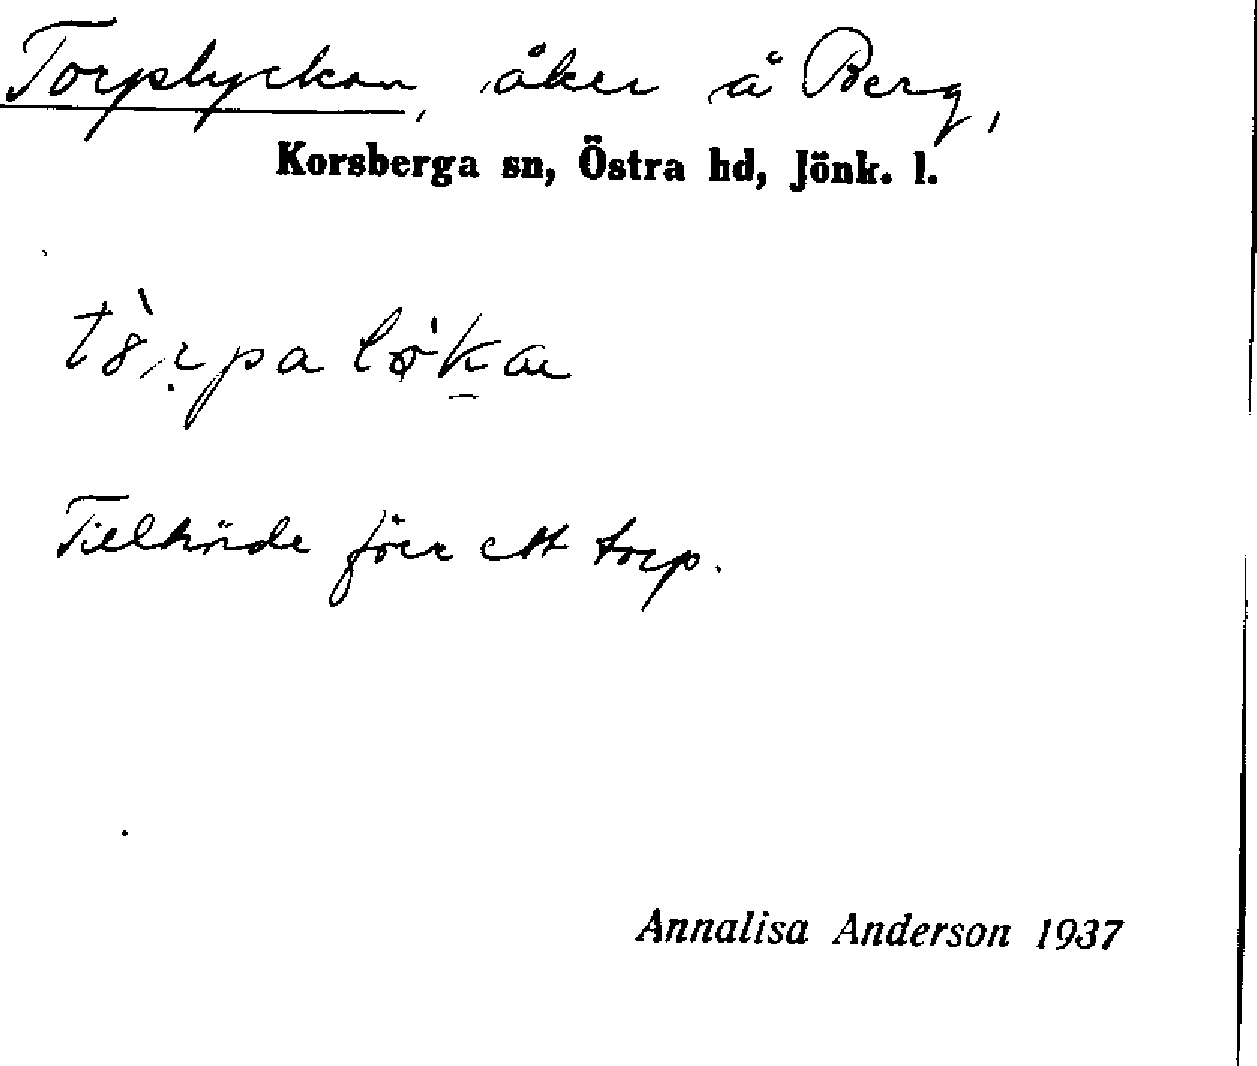 Torplyckan, åker å Berg,
Korsberga sn, Östra hd, Jönk. l.
Tillhörde förr ett torp.
Annalisa Anderson 1937